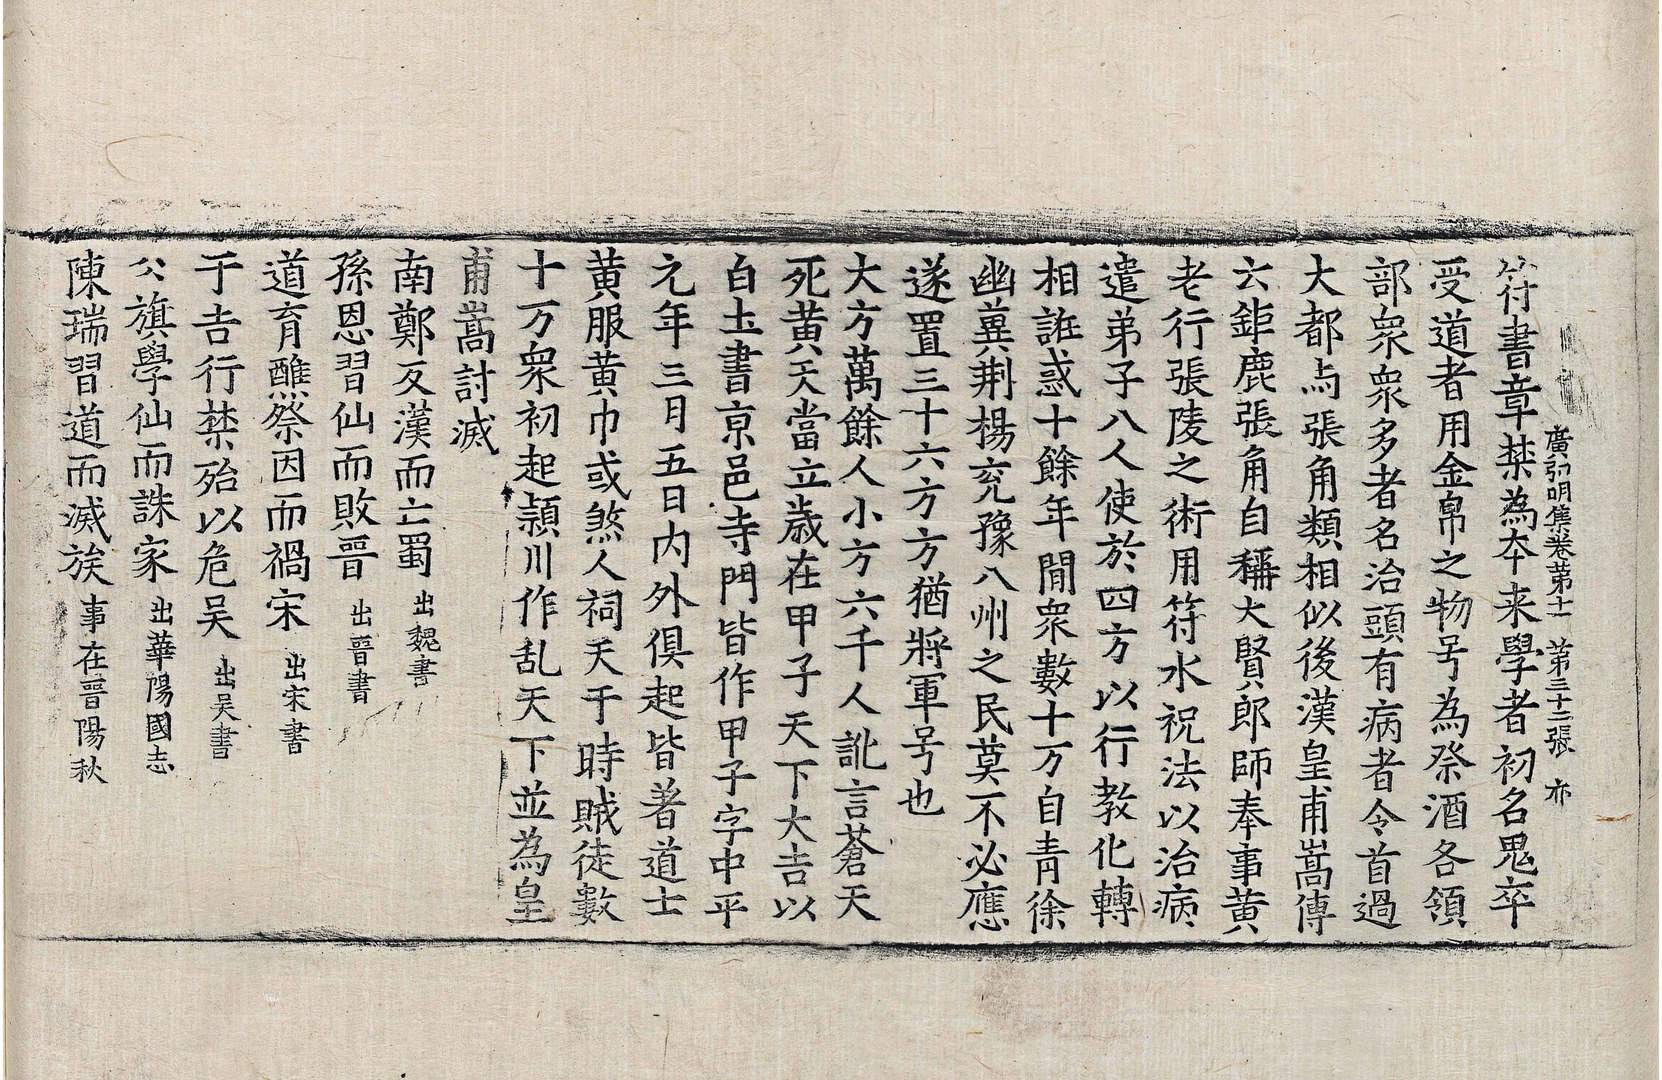 廣弘明集卷第十一 第三十二張 亦
符書章禁為本来學者初名鬼卒
受道者用金帛之物号為祭酒各領
部衆衆多者名治頭有病者令首過
大都与張角類相似後漢皇甫嵩傳
云鉅鹿張角自稱大賢郎師奉事黃
老行張陵之術用符水祝法以治病
遣弟子八人使於四方以行教化轉
相誑惑十餘年閒衆數十万自青徐
幽冀荆楊兖豫八州之民莫不必應
遂置三十六方方猶將軍号也
大方萬餘人小方六千人訛言蒼天
死黃天當立歲在甲子天下大吉以
白土書京邑寺門皆作甲子字中平
元年三月五日内外俱起皆著道士
黃服黃巾或煞人祠天于時賊徒數
十万衆初起潁川作乱天下並為皇
甫嵩討滅
南鄭反漢而亡蜀 出魏書
孫恩習仙而敗晉 出晉書
道育醮祭因而禍宋 出宋書
于吉行禁殆以危吴 出吴書
公旗學仙而誅家 出華陽國志
陳瑞習道而滅族 事在晉陽秋